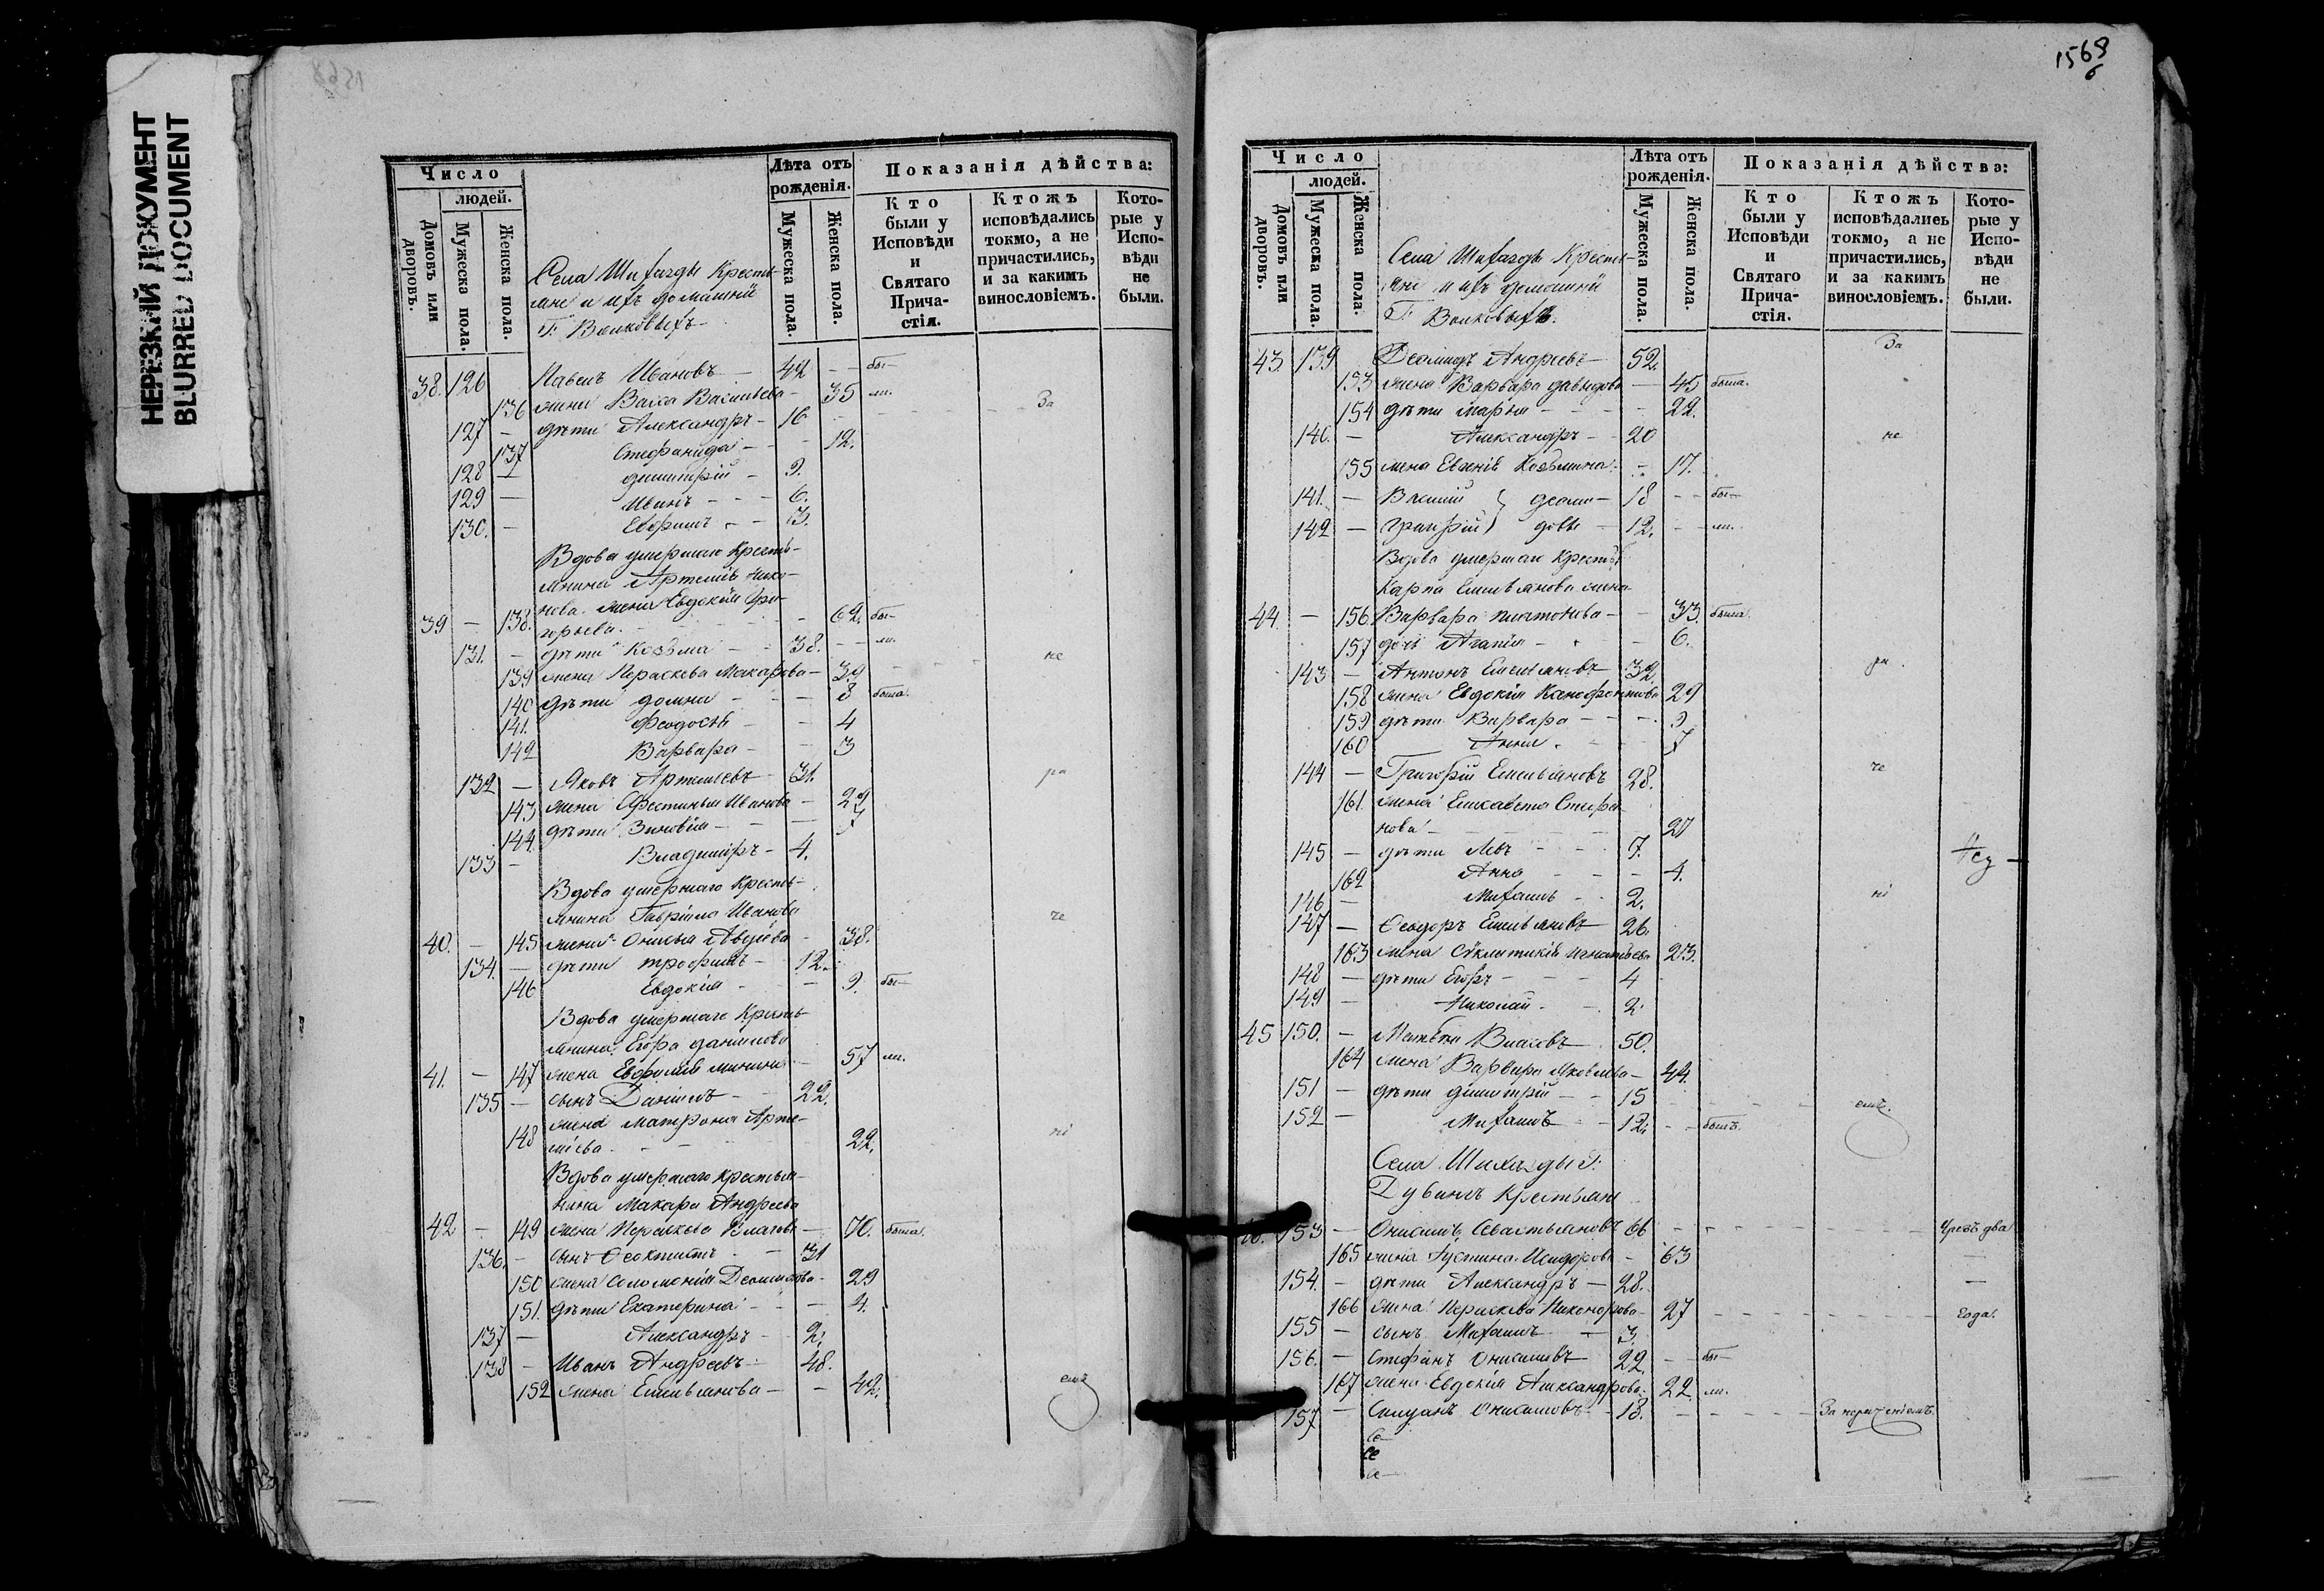 НЕРЕЗКИЙ ДОКУМЕНТ
BLURRED DOCUMENT
Число
людей.
Домовъ или дворовъ.
Мужеска пола.
Женска пола.
Села Шихазды Крестья-
не и ихъ домашніи
Г. Волковыхъ
Лѣта отъ рожденія.
Мужеска пола.
Женска пола.
Показанія дѣйства:
Кто были у Исповѣди и Святаго Прича-стія.
Ктожъ исповѣдались токмо, а не причастились, и за какимъ винословіемъ.
Кото-рые у Испо-вѣди не были.
38. 126 Павелъ Ивановъ — 42 — — бы—
136 жена Васса Васильева — 35 ли.
За
127 — дѣти Александръ — 16
137 Стефанида — — 12.
128 — Димитрій — 9.
129 — Иванъ — — 6.
130. — Евфимъ — — 3.
Вдова умершаго Кресть-
янина Артемія
нова жена Евдокія Гри-
39 — 138. горьева. — 62. бы—
131. — дѣти Козьма — 38. — — ли.
139 жена Параскева Макарова — 39
не
140 дѣти Домна — — 8 была.
141. Феодосія — — 4
142 Варвара — — 3
132 — Яковъ Артемьевъ 31.
ра
143 жена Фестинья Иванова — 29
144. дѣти Зиновія — —
133 — Владиміръ — 4.
Вдова умершаго Кресть-
янина Гавріила Иванова
че
40. — 145 жена Онисья Авдѣева — 38.
134. — дѣти Трофимъ — 12.
146 Евдокія — — 9. бы—
Вдова умершаго Кресть-
янина Егора Данилова
41. — 147 жена Евфимія Минина — 57 ли.
135 — сынъ Даніилъ — 22.
148 жена Матрона Арте-
міева. — 22.
ні
Вдова умершаго Крестья-
нина Макара Андреева
42 — 149 жена Параскева Власова — 70. была.
136. — сынъ Ѳеоктистъ — 31
150 жена Соломонія Деомидова — 29
151. дѣти Екатерина — — 4.
137 — Александръ — 2.
138 — Иванъ Андреевъ 48.
152 жена Емельянова — — 42.
емъ
1568
6
Число
людей.
Домовъ или дворовъ.
Мужеска пола.
Женска пола.
Села Шихазды Кресть-
яне и ихъ домашніи
Г. Волковыхъ.
Лѣта отъ рожденія.
Мужеска пола.
Женска пола.
Показанія дѣйства:
Кто были у Исповѣди и Святаго Прича-стія.
Ктожъ исповѣдались токмо, а не причастились, и за какимъ винословіемъ.
Кото-рые у Испо-вѣди не были.
За
43 139 Деомидъ Андреевъ — 52.
153 жена Варвара Давыдова — 45 была.
154 дѣти Марья — — 22.
140. — Александръ — 20
не
155 жена Евгенія Козьмина — 17.
141. — Василій } Деоми— 18 — — бы—
142 — Григорій } довы — 12. — — ли.
Вдова умершаго Кресть
Карпа Емельянова жена
44. — 156. Варвара Платонова — — 33. была.
157 дочь Агапія — — 6.
143 — Антонъ Емельяновъ 32.
ра
158 жена Евдокія 29
159 дѣти Варвара — — — 9
160 Анна — — 7
144 — Григорій Емельяновъ 28.
че
161. жена Елисавета Стефа-
нова — 27
145 — дѣти Левъ — — 7.
162 Анна — — — 4.
146 — Михаилъ — 2.
ні
147 — Ѳеодоръ Емельяновъ 26.
163 жена Сѵклитикія Игнатьева 23.
148 — дѣти Егоръ — — 4
149 — Николай — — 2.
45 150. — Матвѣй Власовъ 50.
164 жена Варвара Яковлева — 44.
151 — дѣти Димитрій — — 15
емъ.
152 — Михаилъ — — 12. — — былъ.
Села Шихазды Г.
Дубины Крестьяне
46. 153 — Онисимъ Севастьяновъ 66 — — — — Чрезъ два
165 жена Густина Исидорова — 63 —
154. — дѣти Александръ — 28. —
166 жена Параскева Никонорова — 27 — — — года.
155 — сынъ Михаилъ — 3.
156. — Стефанъ Онисимовъ 22. — — бы—
167 жена Евдокія Александрова. 22 ли.
157 — Силуанъ Онисимовъ — 18. — — — За нераченіемъ.
Се
Се
Се